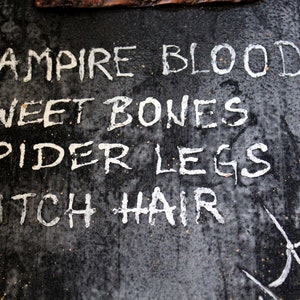 AMPIRE BLOOD
WEET BONES
PIDER LEGS
ITCH HAIR